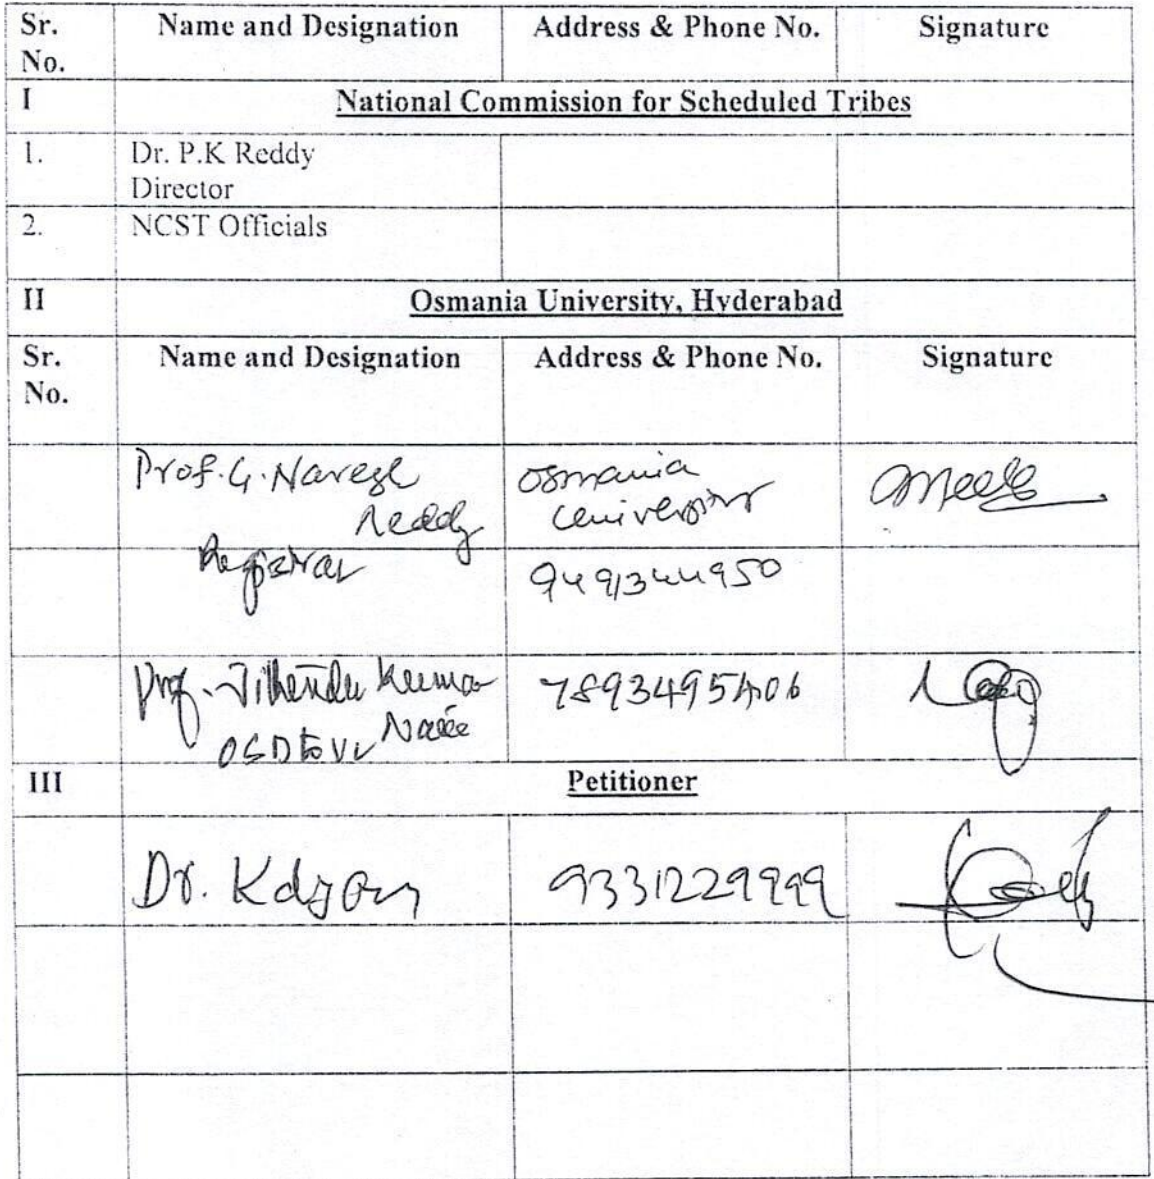 Sr. No. Name and Designation Address & Phone No. Signature
I National Commission for Scheduled Tribes
1. Dr. P.K Reddy
Director
2. NCST Officials
II Osmania University, Hyderabad
Sr. No. Name and Designation Address & Phone No. Signature
Prof. G. Naresh Reddy
Osmania University
Registrar
9491344950
Prof. Jithendra Kumar Naik
OSD to VC
III Petitioner
Dr. Kalyan
9331229999